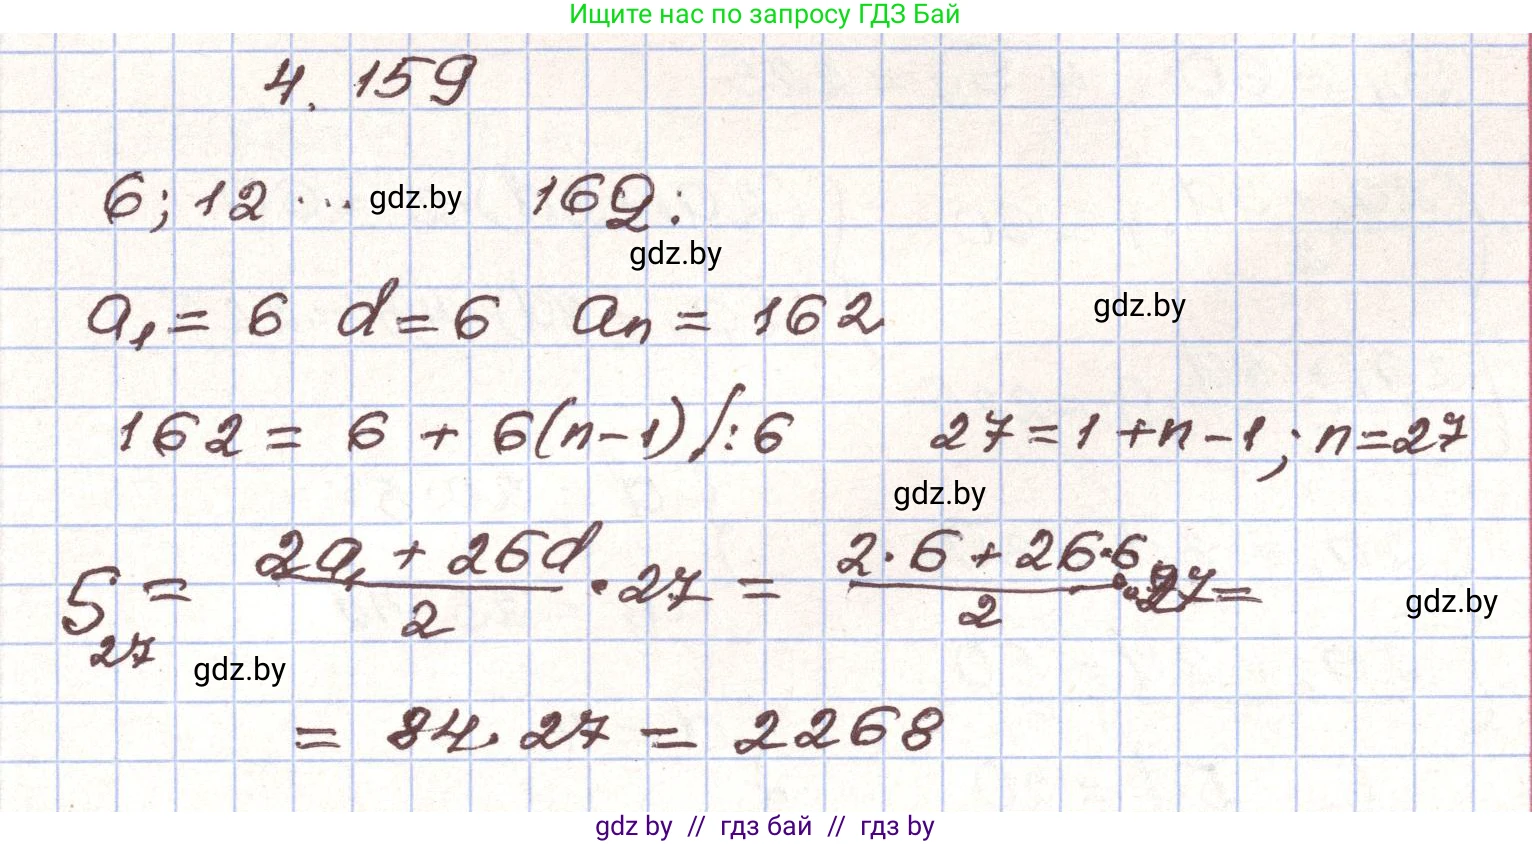 Ищите нас по запросу ГДЗ Бай
4. 159
6; 12 ... gdz.by 162:
gdz.by
a₁ = 6 d = 6 aₙ = 162
gdz.by
162 = 6 + 6(n-1) /:6 27 = 1 + n - 1; n = 27
gdz.by
S₂₇ = (2a₁ + 26d)/2 · 27 = (2·6 + 26·6)/2 · 27 =
gdz.by
gdz.by
= 84 · 27 = 2268
gdz by // гдз бай // гдз by